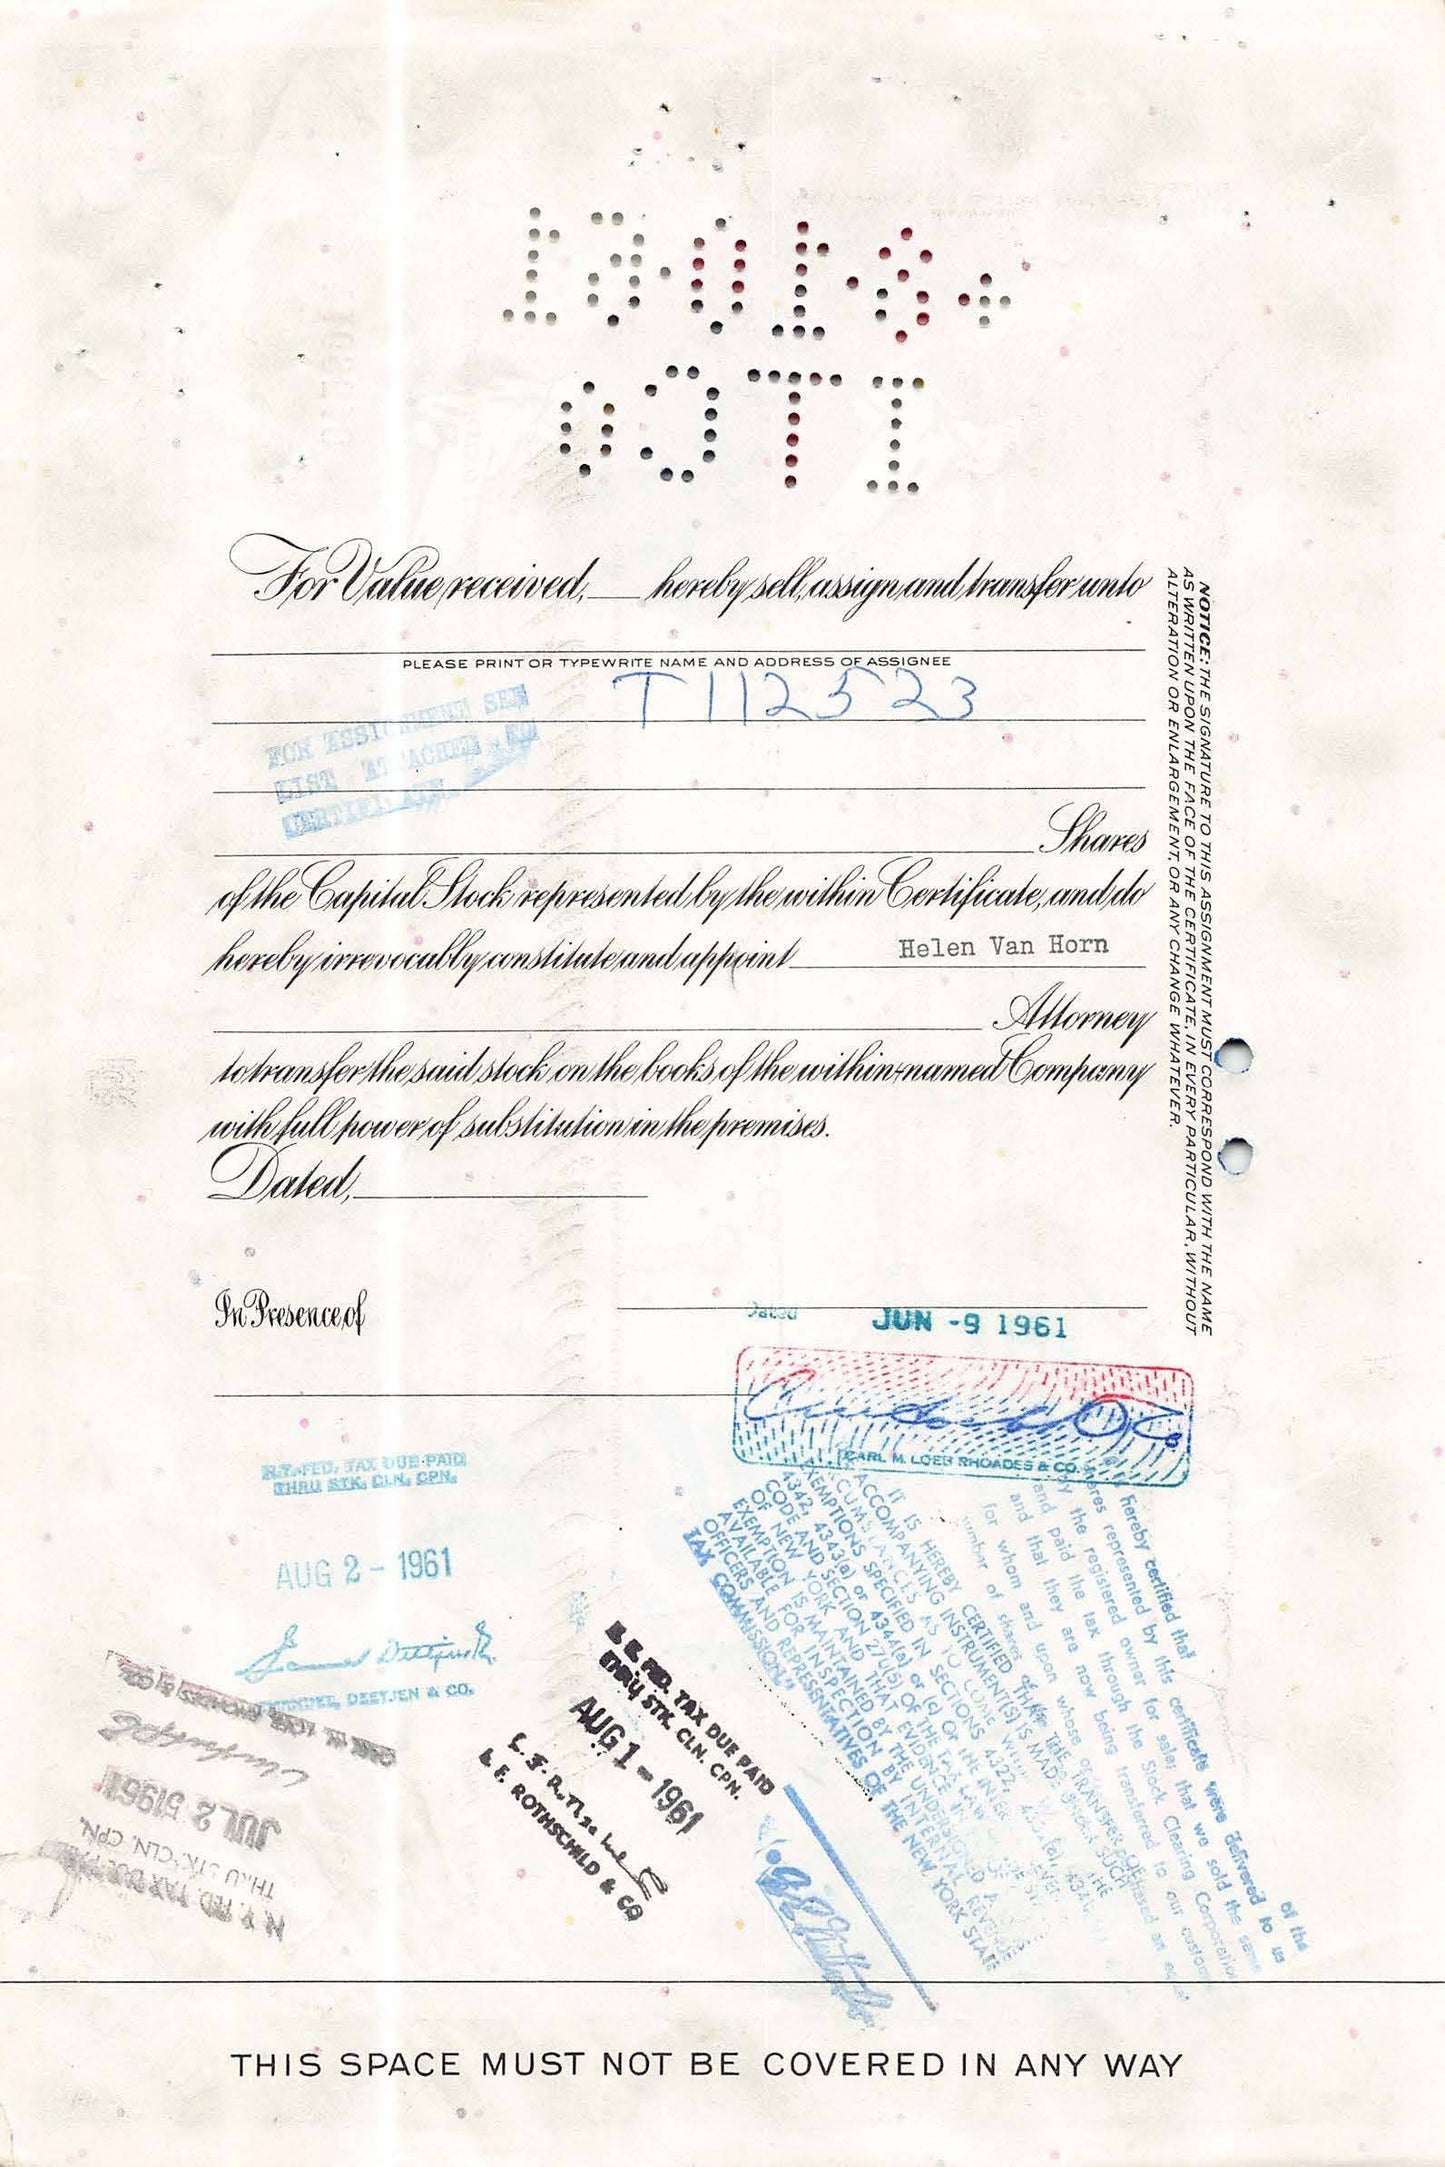 For Value received, ___ hereby sell, assign and transfer unto
PLEASE PRINT OR TYPEWRITE NAME AND ADDRESS OF ASSIGNEE
T112523
FOR ASSIGNMENT SEE
LIST ATTACHED
Shares
of the Capital Stock represented by the within Certificate, and do
hereby irrevocably constitute and appoint Helen Van Horn
Attorney
to transfer the said stock on the books of the within-named Company
with full power of substitution in the premises.
Dated,
NOTICE: THE SIGNATURE TO THIS ASSIGNMENT MUST CORRESPOND WITH THE NAME
AS WRITTEN UPON THE FACE OF THE CERTIFICATE, IN EVERY PARTICULAR, WITHOUT
ALTERATION OR ENLARGEMENT, OR ANY CHANGE WHATEVER.
In Presence of
Dated JUN -9 1961
CARL M. LOEB RHOADES & CO.
N.Y. FED. TAX DUE PAID
THRU STK. CLN. CPN.
AUG 2 - 1961
DEETJEN & CO.
FED. TAX DUE PAID
STK. CLN. CPN.
AUG 1 - 1961
L. F. ROTHSCHILD & CO
JUL 25 1961
THRU STK. CLN. CPN.
N.Y. FED. TAX DUE
IT IS HEREBY CERTIFIED THAT THE
ACCOMPANYING INSTRUMENT(S) IS MADE UNDER SUCH
EXEMPTIONS SPECIFIED IN SECTIONS 4322,
4342, 4343(a) or 4344(a) or (c) OF THE
CODE AND SECTION 270(5) OF THE TAX LAW
OF NEW YORK AND THAT EVIDENCE
EXEMPTION IS MAINTAINED BY THE UNDERSIGNED
AVAILABLE FOR INSPECTION BY INTERNAL REVENUE
OFFICERS AND REPRESENTATIVES OF THE NEW YORK STATE
TAX COMMISSION."
of the
hereby certified that certificate were delivered to us
represented by this certificate
the registered owner for sale; that we sold the same
and paid the tax through the Stock Clearing Corporation
and that they are now being transferred to our
for whom and upon whose
number of shares of
THIS SPACE MUST NOT BE COVERED IN ANY WAY